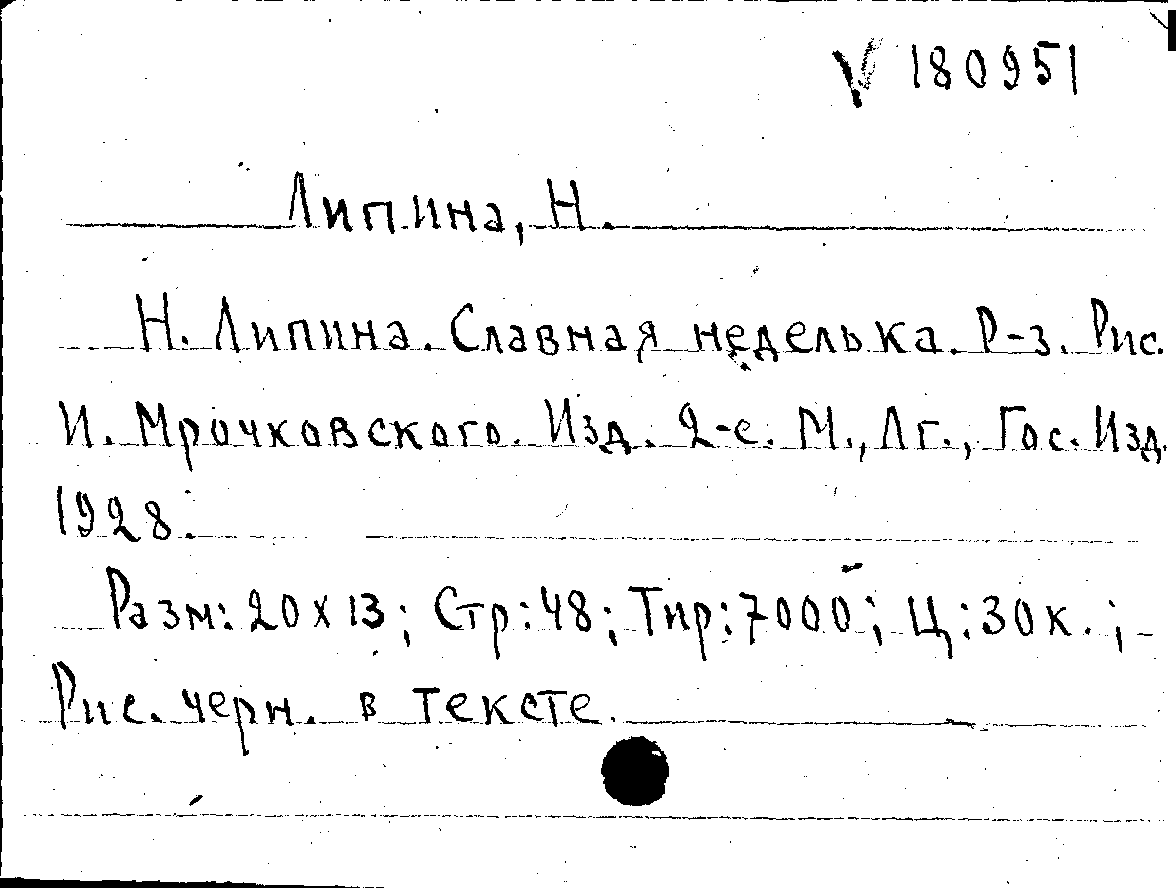 V 180951
Липина, Н.
Н. Липина. Славная неделька. Р-з. Рис.
И. Мрочковского. Изд. 2-е. М., Лг., Гос. Изд.
1928.
Разм: 20 х 13; Стр: 48; Тир: 7000; Ц: 30 к. ;
Рис. черн. в тексте.